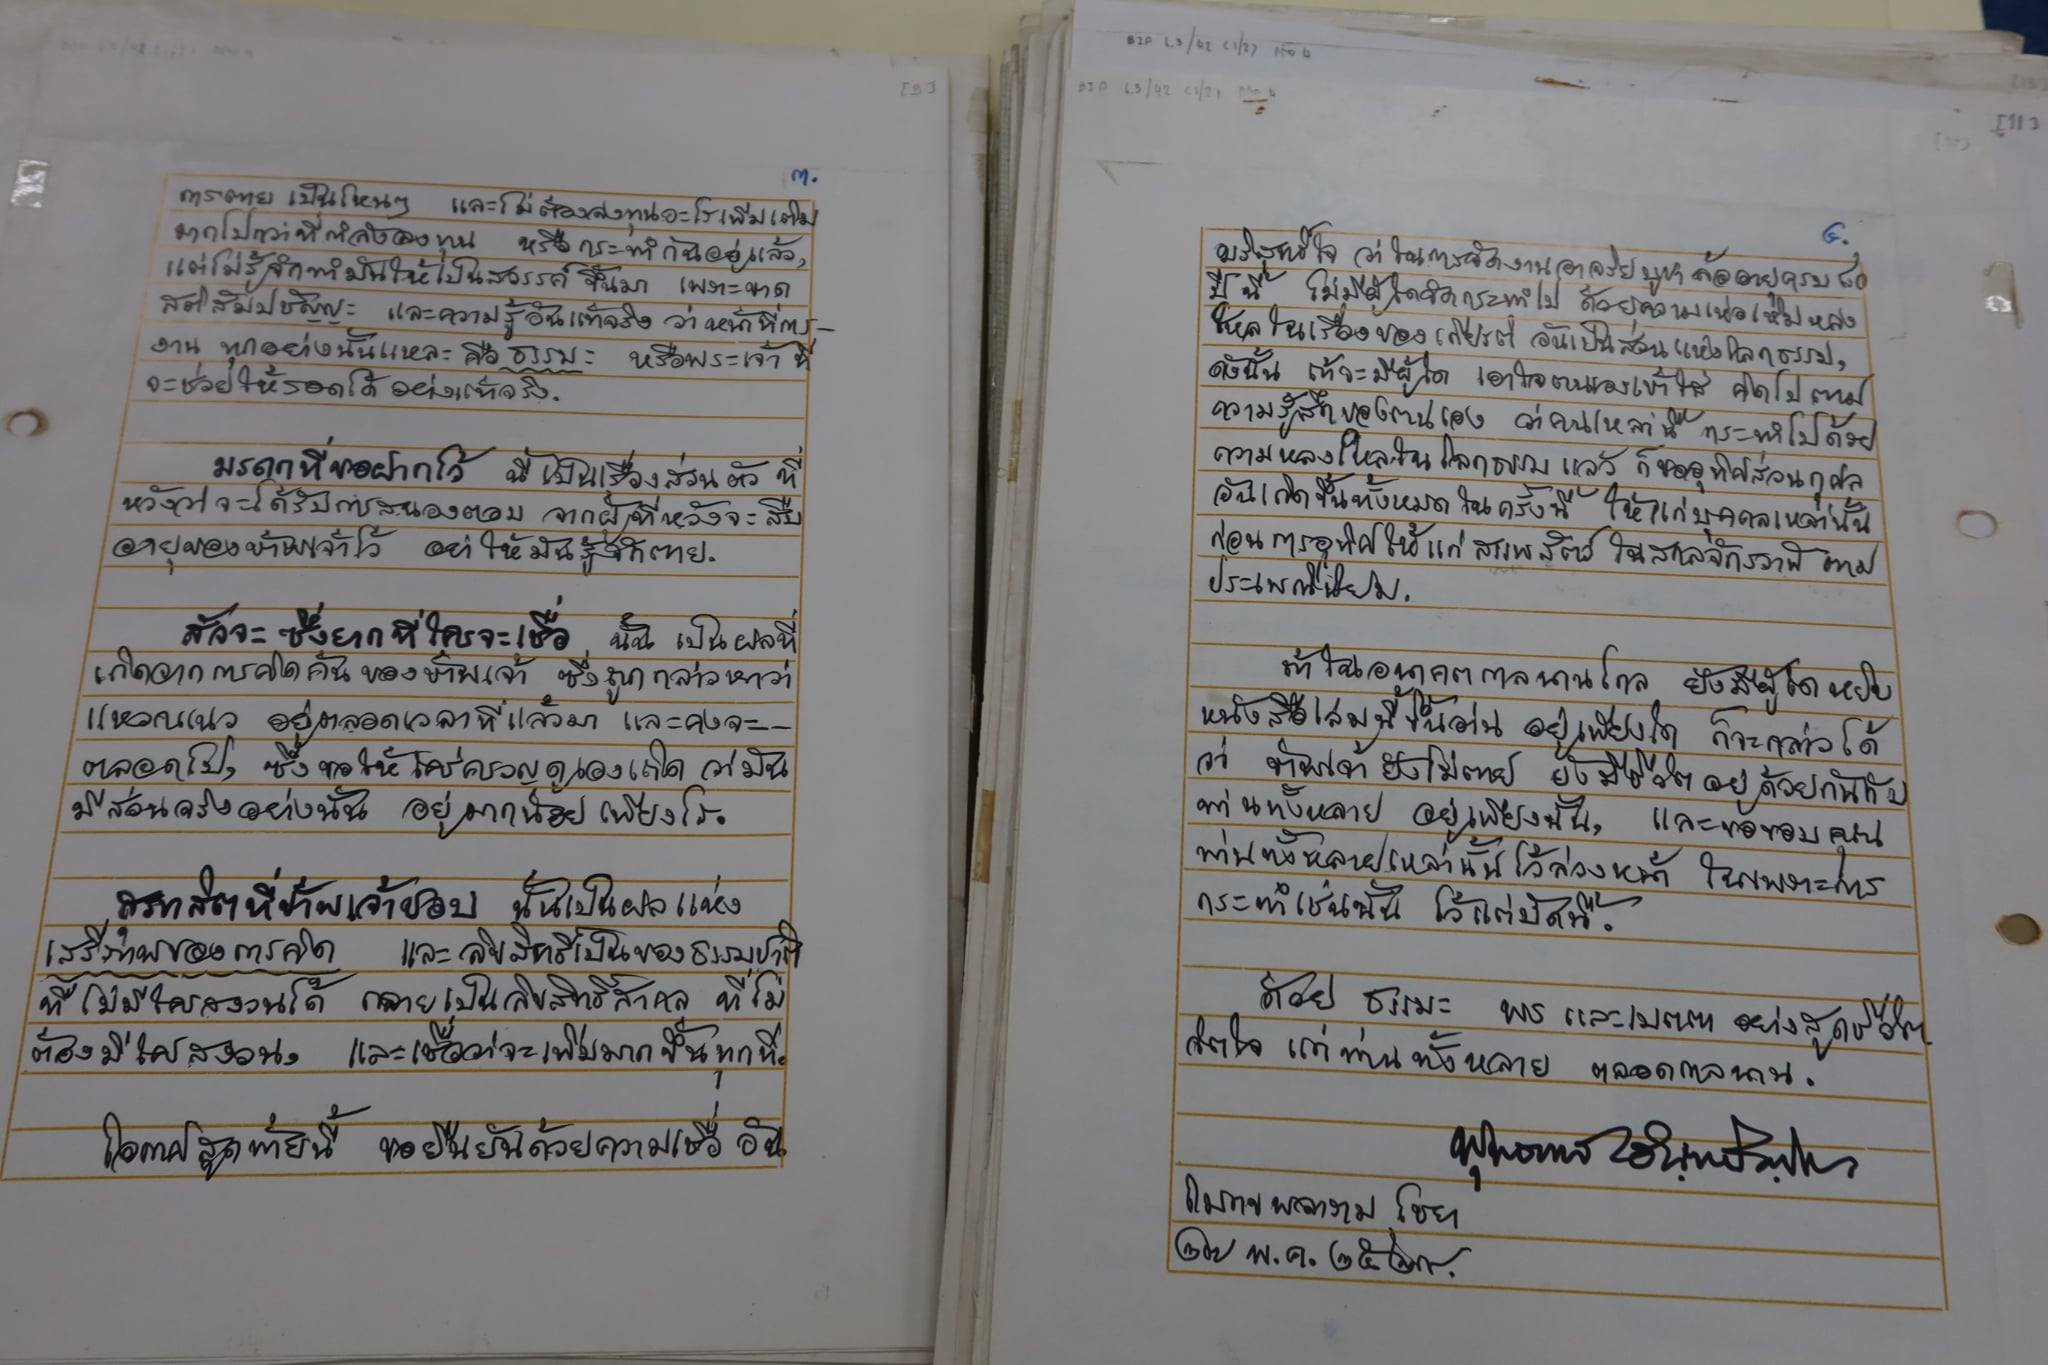 [9]
๓.
การตาย เป็นไหนๆ และไม่ต้องลงทุนอะไรเพิ่มเติม
มากไปกว่าที่กำลังลงทุน หรือกระทำกันอยู่แล้ว,
แต่ไม่รู้จักทำมันให้เป็นสวรรค์ขึ้นมา เพราะขาด
สติสัมปชัญญะ และความรู้อันแท้จริง ว่าหน้าที่การ-
งาน ทุกอย่างนั้นแหละ คือ ธรรมะ หรือพระเจ้า ที่
จะช่วยให้รอดได้ อย่างแท้จริง.
มรดกที่ขอฝากไว้ นี้เป็นเรื่องส่วนตัว ที่
หวังว่าจะได้รับการสนองตอบ จากผู้ที่หวังจะสืบ
อายุของข้าพเจ้าไว้ อย่าให้มันรู้จักตาย.
สัจจะ ซึ่งยากที่ใครจะเชื่อ นั้น เป็นผลที่
เกิดจากการคิดค้นของข้าพเจ้า ซึ่งถูกกล่าวหาว่า
แหวกแนว อยู่ตลอดเวลาที่แล้วมา และคงจะ--
ตลอดไป, ซึ่งขอให้ใคร่ครวญดูเองเถิด ว่ามัน
มีส่วนจริงอย่างนั้น อยู่มากน้อยเพียงไร.
สุภาษิตที่ข้าพเจ้าชอบ นั้นเป็นผลแห่ง
เสรีภาพของการคิด และลิขสิทธิ์เป็นของธรรมชาติ
ที่ไม่มีใครสงวนได้ กลายเป็นลิขสิทธิ์สากล ที่ไม่
ต้องมีใครสงวน, และเชื่อว่าจะเพิ่มมากขึ้นทุกที.
โอกาสสุดท้ายนี้ ขอยืนยันด้วยความเชื่อ อัน
BIA 1.3/42 (1/2) กล่อง 4
BIA 1.3/42 (1/2) กล่อง 4
[11]
๔.
บริสุทธิ์ใจ ว่าในการจัดงานอาจริยบูชา ล้ออายุครบ ๘๐
ปี นี้ ไม่มีผู้ใดจัดกระทำไป ด้วยความเห่อเหิมหลง
ใหลในเรื่องของเกียรติ อันเป็นส่วนแห่งโลกธรรม,
ดังนั้น ถ้าจะมีผู้ใด เอาใจตนของเขาใส่ คิดไปตาม
ความรู้สึกของตนเอง ว่าคนเหล่านี้ กระทำไปด้วย
ความหลงใหลในโลกธรรม แล้ว ก็ขออุทิศส่วนกุศล
อันเกิดขึ้นทั้งหมดในครั้งนี้ ให้แก่บุคคลเหล่านั้น
ก่อนการอุทิศให้แก่ สรรพสัตว์ ในสกลจักรวาฬ ตาม
ประเพณีนิยม.
ถ้าในอนาคตกาลนานไกล ยังมีผู้ใด หยิบ
หนังสือเล่มนี้ขึ้นอ่าน อยู่เพียงใด ก็จะกล่าวได้
ว่า ข้าพเจ้ายังไม่ตาย ยังมีชีวิตอยู่ด้วยกันกับ
ท่านทั้งหลาย อยู่เพียงนั้น, และขอขอบคุณ
ท่านทั้งหลายเหล่านั้นไว้ล่วงหน้า ในเพราะการ
กระทำเช่นนั้น ไว้แต่บัดนี้.
ด้วย ธรรมะ พร และเมตตา อย่างสุดชีวิต
จิตใจ แด่ท่านทั้งหลาย ตลอดกาลนาน.
พุทธทาส อินฺทปญฺโญ
โมกขพลาราม ไชยา
๒๗ พ.ค. ๒๕๒๙.